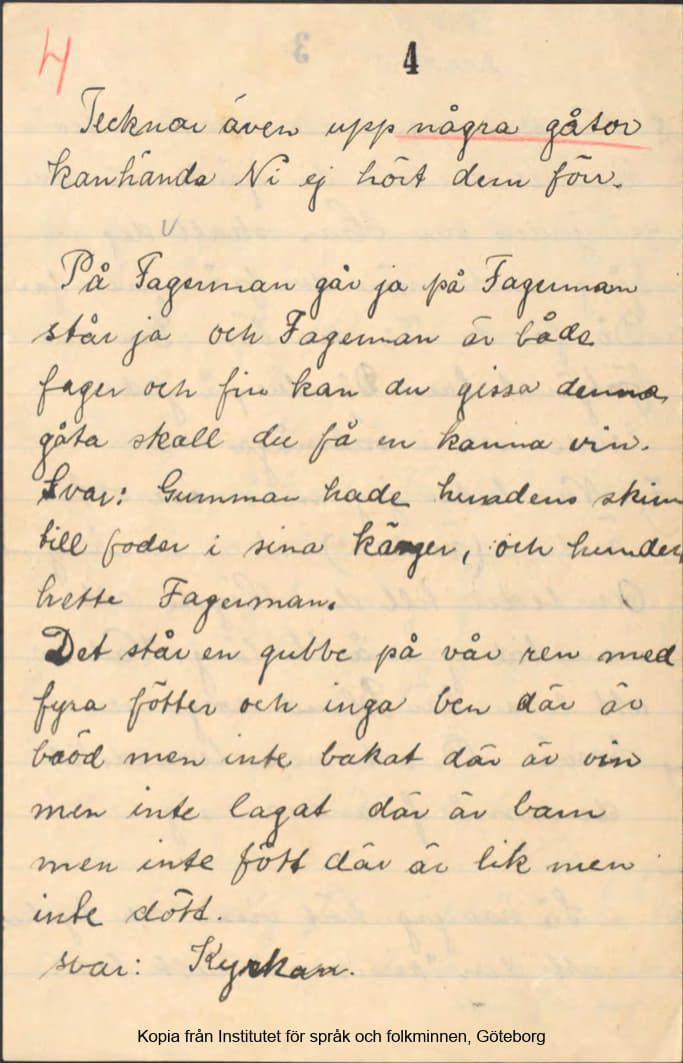 4 4
Tecknar även upp några gåtor
kanhända Ni ej hört dem förr.
På Fagerman går ja på Fagerman
står ja och Fagerman är båda
fager och fin kan du gissa denna
gåta skall du få en kanna vin.
Svar: Gumman hade hundens skinn
till foder i sina känger, och hunden
hette Fagerman.
Det står en gubbe på vår ren med
fyra fötter och inga ben där är
bröd men inte bakat där är vin
men inte lagat där är barn
men inte fött där är lik men
inte dött.
svar: Kyrkan.
Kopia från Institutet för språk och folkminnen, Göteborg